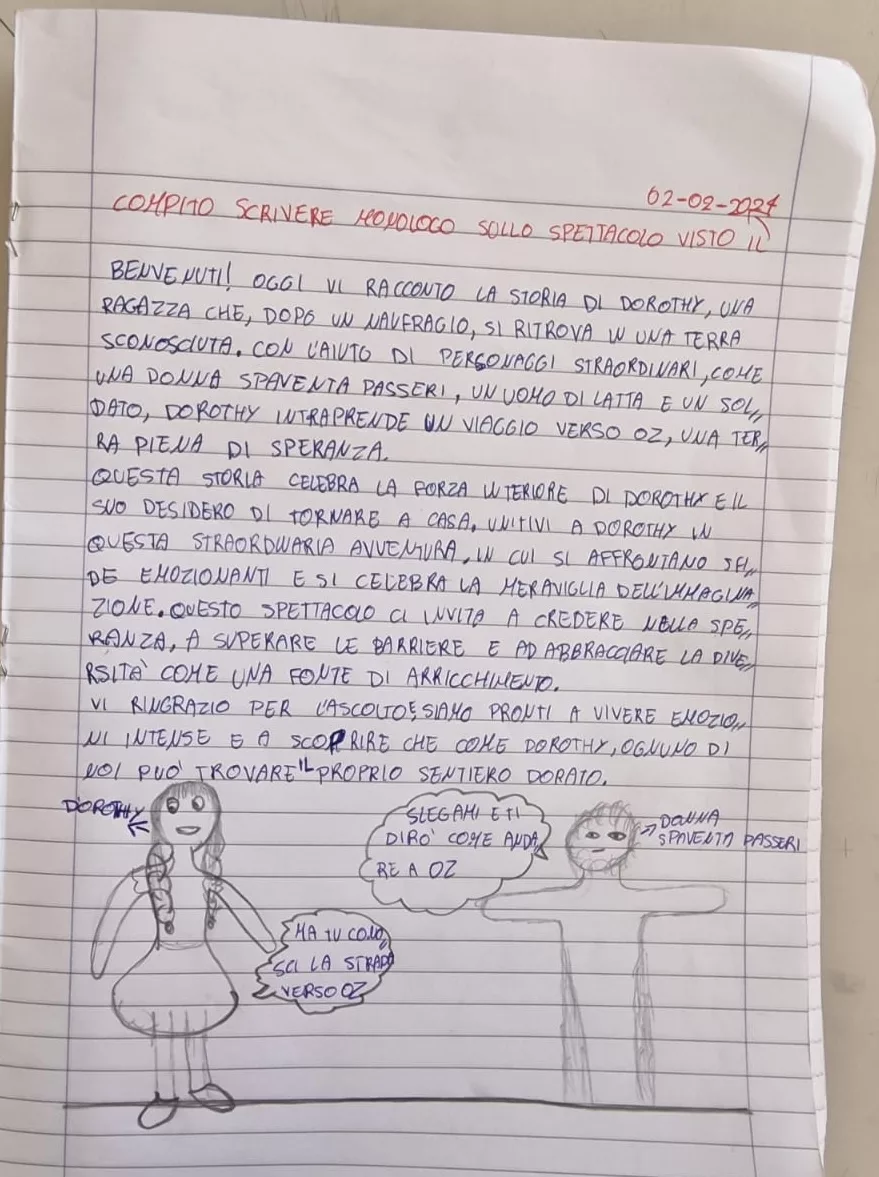 02-02-2024
COMPITO SCRIVERE MONOLOCO SULLO SPETTACOLO VISTO IL
BENVENUTI! OGGI VI RACCONTO LA STORIA DI DOROTHY, UNA
RAGAZZA CHE, DOPO UN NAUFRAGIO, SI RITROVA IN UNA TERRA
SCONOSCIUTA. CON L'AIUTO DI PERSONAGGI STRAORDINARI, COME
UNA DONNA SPAVENTA PASSERI, UN UOMO DI LATTA E UN SOL,,
DATO, DOROTHY INTRAPRENDE UN VIAGGIO VERSO OZ, UNA TER,,
RA PIENA DI SPERANZA.
QUESTA STORIA CELEBRA LA FORZA INTERIORE DI DOROTHY E IL
SUO DESIDERO DI TORNARE A CASA. UNITIVI A DOROTHY IN
QUESTA STRAORDINARIA AVVENTURA, IN CUI SI AFFRONTANO SFI,,
DE EMOZIONANTI E SI CELEBRA LA MERAVIGLIA DELL'IMMAGINA,,
ZIONE. QUESTO SPETTACOLO CI INVITA A CREDERE NELLA SPE,,
RANZA, A SUPERARE LE BARRIERE E AD ABBRACCIARE LA DIVE,,
RSITÀ COME UNA FONTE DI ARRICCHIMENTO.
VI RINGRAZIO PER L'ASCOLTO E SIAMO PRONTI A VIVERE EMOZIO,,
NI INTENSE E A SCOPRIRE CHE COME DOROTHY, OGNUNO DI
NOI PUÒ TROVARE IL PROPRIO SENTIERO DORATO.
DOROTHY
SLEGAMI E TI
DIRÒ COME ANDA,,
RE A OZ
DONNA
SPAVENTA PASSERI
MA TU CONO,,
SCI LA STRADA
VERSO OZ